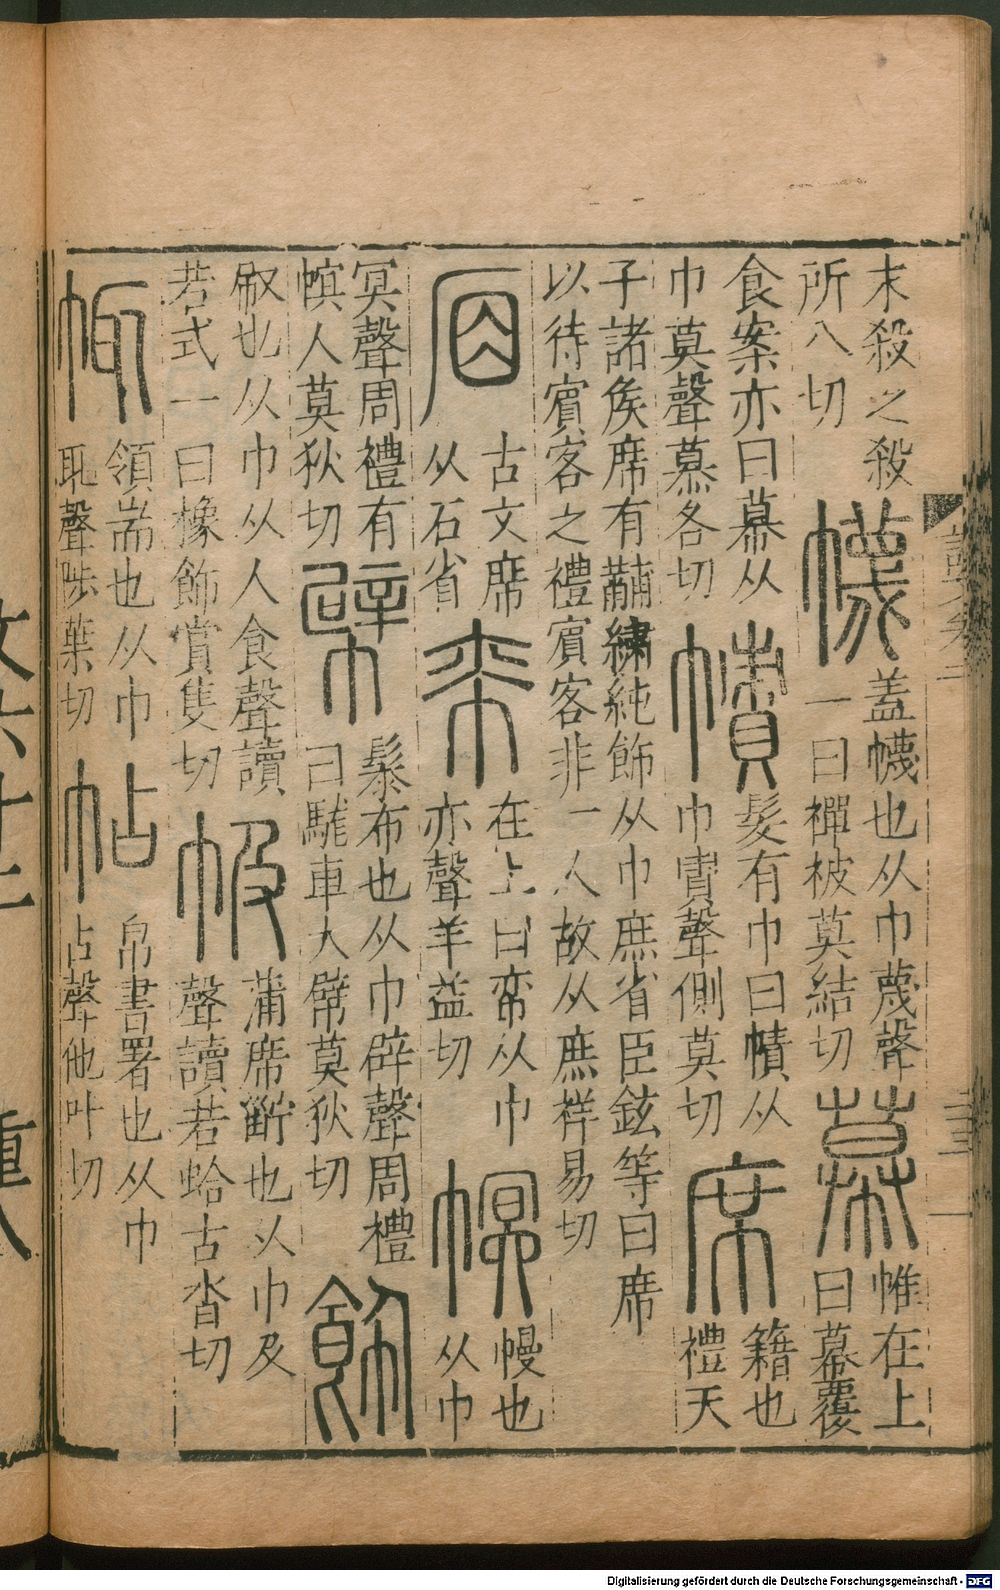 末殺之殺
所八切
幭
蓋幭也从巾蔑聲
一曰襌被莫結切
幕
帷在上
曰幕覆
食案亦曰幕从
巾莫聲慕各切
幘
髮有巾曰幘从
巾責聲側莫切
席
籍也
禮天
子諸矦席有黼繡純飾从巾庶省臣鉉等曰席
以待賓客之禮賓客非一人故从庶祥易切
古文席
从石省
帟
在上曰帟从巾
亦聲羊益切
幎
幔也
从巾
冥聲周禮有
幎人莫狄切
幦
鬃布也从巾辟聲周禮
曰駹車大幦莫狄切
飾
㕞也从巾从人食聲讀
若式一曰橡飾賞隻切
㡊
蒲席㡜也从巾及
聲讀若蛤古沓切
㡇
領耑也从巾
耴聲陟葉切
帖
帛書署也从巾
占聲他叶切
文六十二
重八
Digitalisierung gefördert durch die Deutsche Forschungsgemeinschaft - DFG